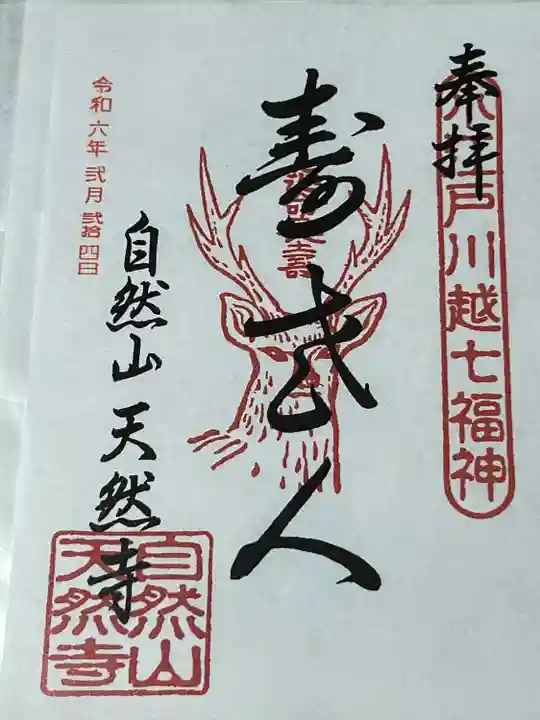 奉拝
小江戸川越七福神
寿老人
自然山天然寺
令和六年弐月弐拾四日
自然山
天然寺